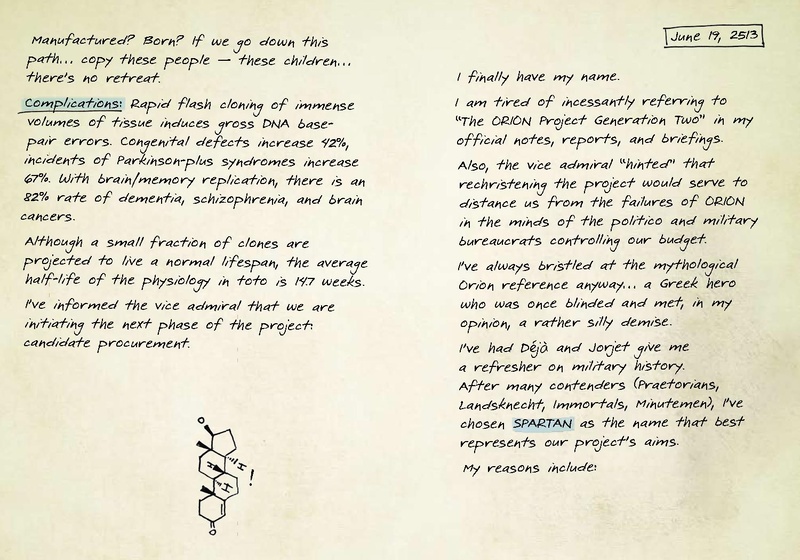 Manufactured? Born? If we go down this
path... copy these people — these children...
there's no retreat.
Complications: Rapid flash cloning of immense
volumes of tissue induces gross DNA base-
pair errors. Congenital defects increase 42%,
incidents of Parkinson-plus syndromes increase
67%. With brain/memory replication, there is an
82% rate of dementia, schizophrenia, and brain
cancers.
Although a small fraction of clones are
projected to live a normal lifespan, the average
half-life of the physiology in toto is 14.7 weeks.
I've informed the vice admiral that we are
initiating the next phase of the project:
candidate procurement.
O
H
H
H
!
O
June 19, 2513
I finally have my name.
I am tired of incessantly referring to
"The ORION Project Generation Two" in my
official notes, reports, and briefings.
Also, the vice admiral "hinted" that
rechristening the project would serve to
distance us from the failures of ORION
in the minds of the politico and military
bureaucrats controlling our budget.
I've always bristled at the mythological
Orion reference anyway... a Greek hero
who was once blinded and met, in my
opinion, a rather silly demise.
I've had Déjà and Jorjet give me
a refresher on military history.
After many contenders (Praetorians,
Landsknecht, Immortals, Minutemen), I've
chosen SPARTAN as the name that best
represents our project's aims.
My reasons include: